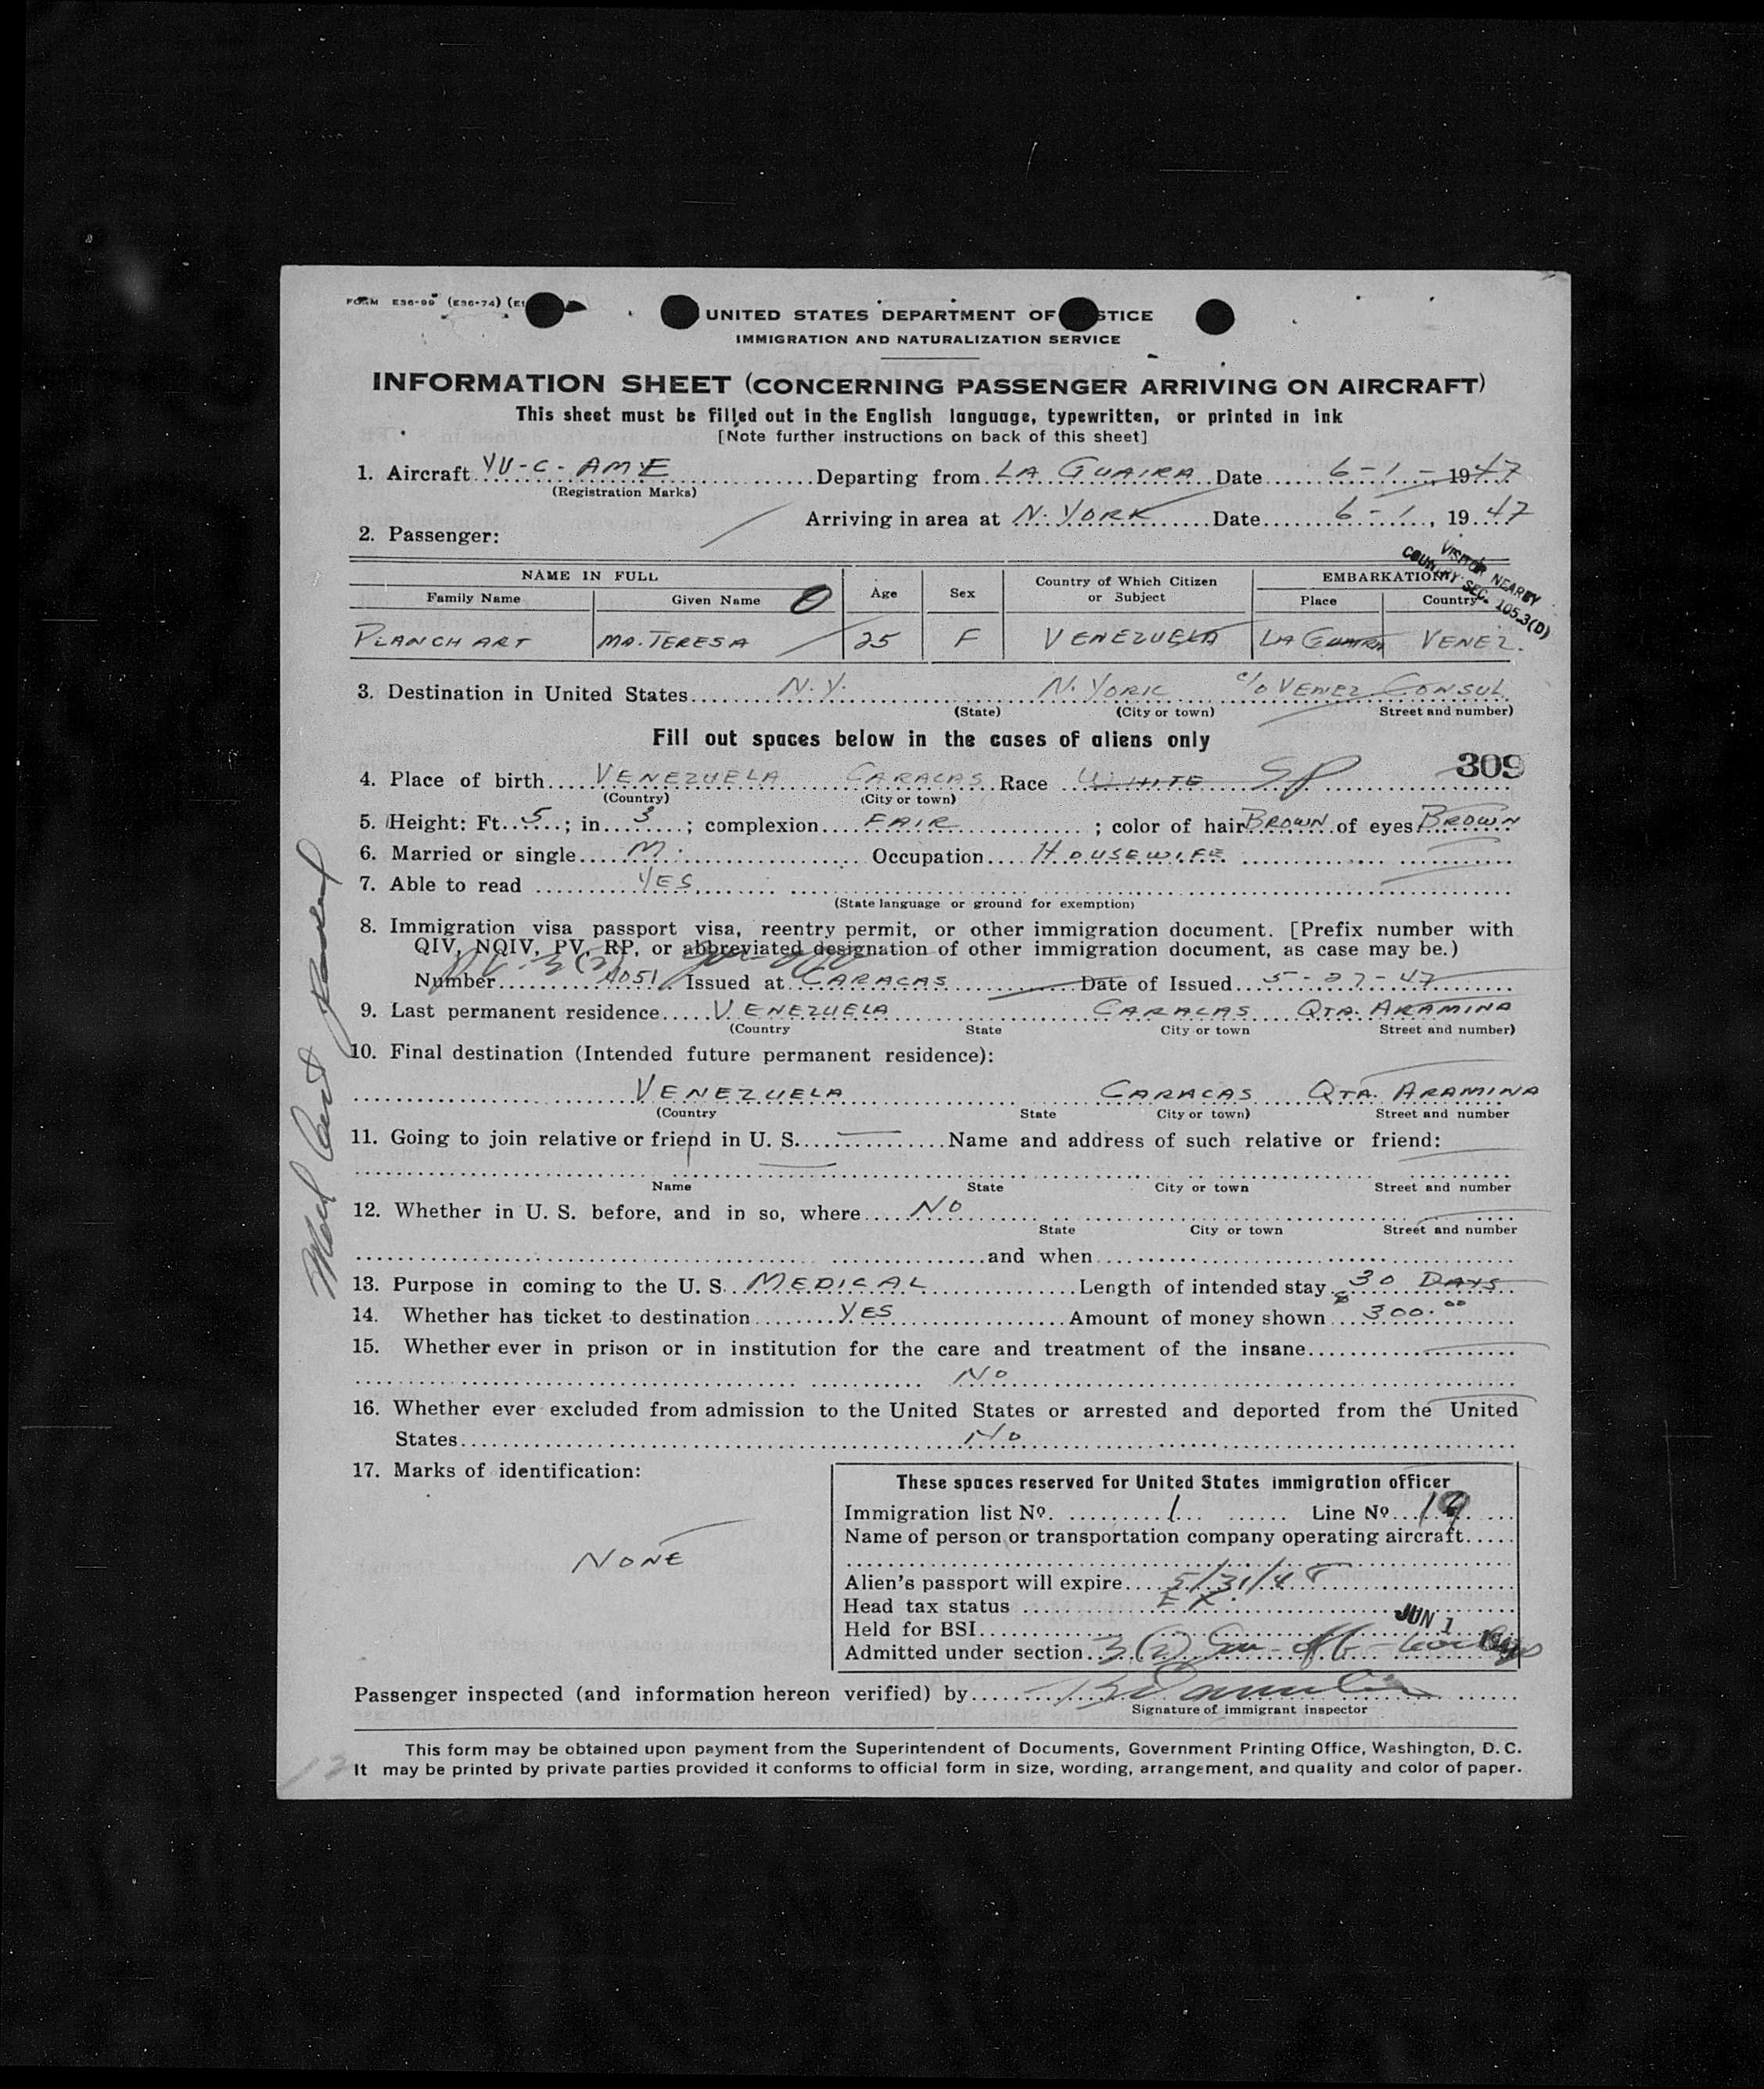 FORM E36-99 (E36-74)
UNITED STATES DEPARTMENT OF STICE
IMMIGRATION AND NATURALIZATION SERVICE
INFORMATION SHEET (CONCERNING PASSENGER ARRIVING ON AIRCRAFT)
This sheet must be filled out in the English language, typewritten, or printed in ink
[Note further instructions on back of this sheet]
1. Aircraft YV-C-AME Departing from LA GUAIRA Date 6-1-, 1947
(Registration Marks)
Arriving in area at N. YORK Date 6-1, 1947
2. Passenger:
VISITOR NEARBY
COUNTRY SEC. 105.3(D)
NAME IN FULL Age Sex Country of Which Citizen or Subject EMBARKATION
Family Name Given Name Place Country
PLANCHART MA. TERESA 25 F VENEZUELA LA GUAIRA VENEZ.
3. Destination in United States N.Y. N. YORK c/o VENEZ CONSUL
(State) (City or town) Street and number)
Fill out spaces below in the cases of aliens only
309
4. Place of birth VENEZUELA CARACAS Race WHITE SP
(Country) (City or town)
5. Height: Ft. 5; in 3; complexion FAIR; color of hair BROWN of eyes BROWN
6. Married or single M. Occupation HOUSEWIFE
7. Able to read YES
(State language or ground for exemption)
8. Immigration visa passport visa, reentry permit, or other immigration document. [Prefix number with
QIV, NQIV, PV, RP, or abbreviated designation of other immigration document, as case may be.)
Number 4051 Issued at CARACAS Date of Issued 5-27-47
9. Last permanent residence VENEZUELA CARACAS QTA. ARAMINA
(Country State City or town Street and number)
10. Final destination (Intended future permanent residence):
VENEZUELA CARACAS QTA. ARAMINA
(Country State City or town) Street and number
11. Going to join relative or friend in U. S. Name and address of such relative or friend:
Name State City or town Street and number
12. Whether in U. S. before, and in so, where NO
State City or town Street and number
and when
13. Purpose in coming to the U. S. MEDICAL Length of intended stay 30 DAYS
14. Whether has ticket to destination YES Amount of money shown $ 300.00
15. Whether ever in prison or in institution for the care and treatment of the insane
NO
16. Whether ever excluded from admission to the United States or arrested and deported from the United
States NO
17. Marks of identification:
NONE
These spaces reserved for United States immigration officer
Immigration list No. 1 Line No. 19
Name of person or transportation company operating aircraft
Alien's passport will expire 5/31/48
Head tax status EX.
Held for BSI JUN 1
Admitted under section 3(2)
Passenger inspected (and information hereon verified) by
Signature of immigrant inspector
This form may be obtained upon payment from the Superintendent of Documents, Government Printing Office, Washington, D. C.
It may be printed by private parties provided it conforms to official form in size, wording, arrangement, and quality and color of paper.